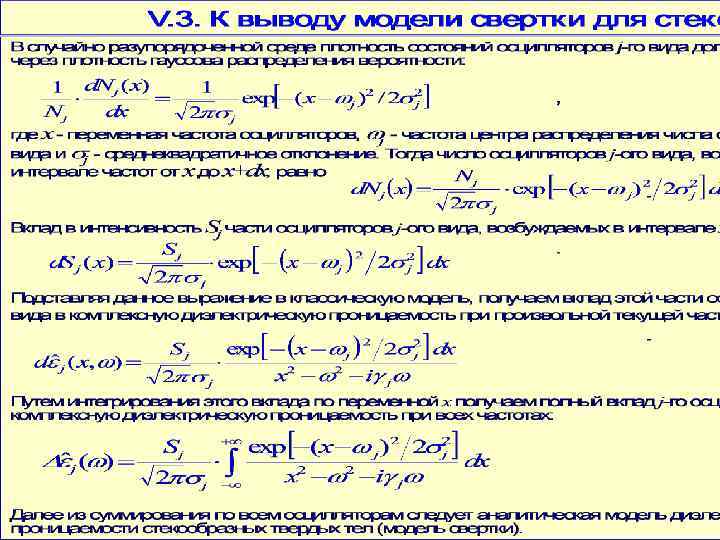 V.3. К выводу модели свертки для стек
В случайно разупорядоченной среде плотность состояний осцилляторов j-го вида
через плотность гауссова распределения вероятности:
1/N_j · dN_j(x)/dx = 1/2πσ_j exp[−(x−ω_j)²/2σ_j²] ,
где x - переменная частота осцилляторов, ω_j - частота центра распределения числа
вида и σ_j - среднеквадратичное отклонение. Тогда число осцилляторов j-ого вида,
интервале частот от x до x+dx, равно
dN_j(x) = N_j/2πσ_j · exp[−(x−ω_j)² 2σ_j²] d
Вклад в интенсивность S_j части осцилляторов j-ого вида, возбуждаемых в интервале
dS_j(x) = S_j/2πσ_j · exp[−(x−ω_j)² 2σ_j²] dx .
Подставляя данное выражение в классическую модель, получаем вклад этой части
вида в комплексную диэлектрическую проницаемость при произвольной текущей част
dε̂_j(x,ω) = S_j/2πσ_j · exp[−(x−ω_j)² 2σ_j²] dx / x²−ω²−iγ_jω
Путем интегрирования этого вклада по переменной x получаем полный вклад j-го осц
комплексную диэлектрическую проницаемость при всех частотах:
Δε̂_j(ω) = S_j/2πσ_j · ∫_{−∞}^{+∞} exp[−(x−ω_j)² 2σ_j²] / x²−ω²−iγ_jω dx
Далее из суммирования по всем осцилляторам следует аналитическая модель диэле
проницаемости стеклообразных твердых тел (модель свертки).